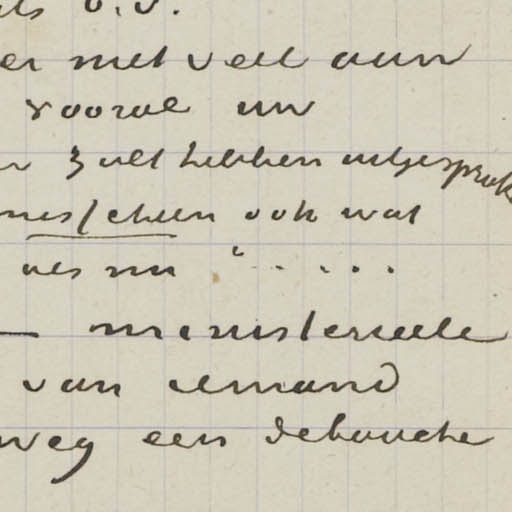 er met veel aan
vooral uw
zult hebben uitgesprok
misschien ook wat
als nu " . . . . .
— ministerieele
van iemand
weg een debauche